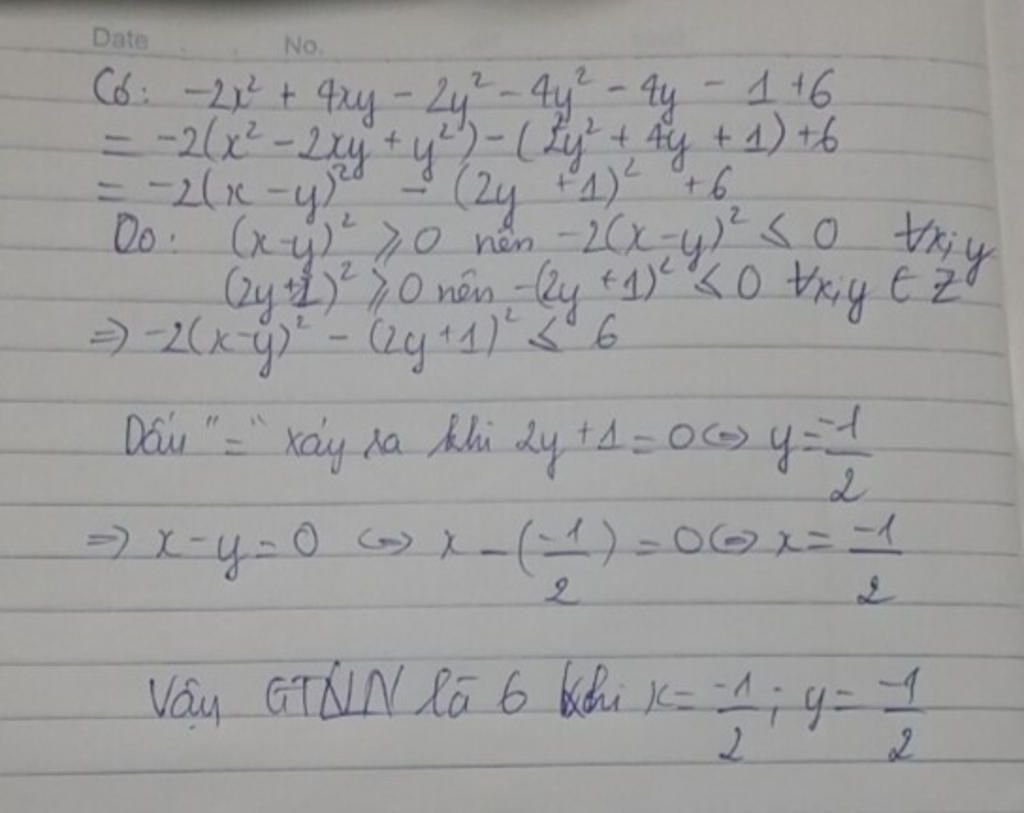 Date No.
Có: -2x² + 4xy - 2y² - 4y² - 4y - 1 + 6
= -2(x² - 2xy + y²) - (2²y² + 4y + 1) + 6
= -2(x - y)² - (2y + 1)² + 6
Do: (x-y)² ≥ 0 nên -2(x-y)² ≤ 0 ∀x;y
(2y+1)² ≥ 0 nên -(2y+1)² ≤ 0 ∀x;y ∈ Z
⇒ -2(x-y)² - (2y+1)² ≤ 6
Dấu "=" xảy ra khi 2y+1=0 ⇔ y = -1/2
⇒ x-y=0 ⇔ x - (-1/2) = 0 ⇔ x = -1/2
Vậy GTNN là 6 khi x = -1/2; y = -1/2